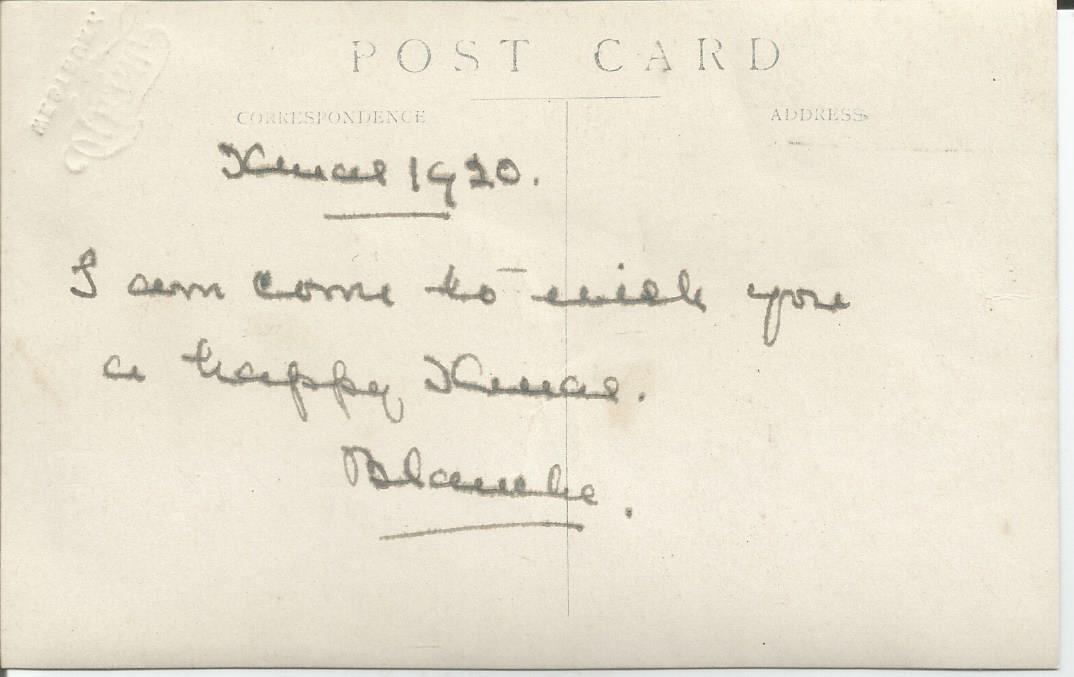 POST CARD
CORRESPONDENCE
ADDRESS
Xmas 1920.
I am come to wish you
a happy Xmas.
Blanche.